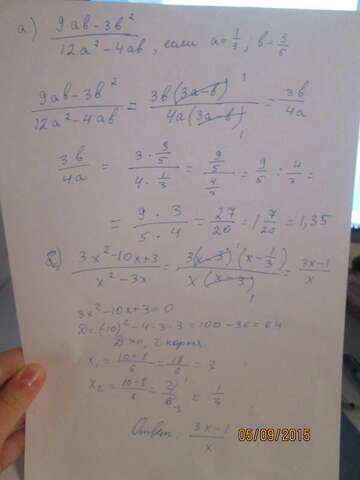 а) (9ab-3b²)/(12a²-4ab), если a=1/3, b=3/5
(9ab-3b²)/(12a²-4ab) = 3b(3a-b)¹/4a(3a-b)₁ = 3b/4a
3b/4a = (3·3/5)/(4·1/3) = (9/5)/(4/3) = 9/5 : 4/3 =
= (9·3)/(5·4) = 27/20 = 1 7/20 = 1,35
(3x²-10x+3)/(x²-3x) = 3(x-3)¹(x-1/3)/x(x-3)₁ = (3x-1)/x
3x²-10x+3=0
D=(-10)²-4·3·3=100-36=64
D>0, 2 корня
x₁ = (10+8)/6 = 18/6 = 3
x₂ = (10-8)/6 = 2¹/6₃ = 1/3
Ответ: (3x-1)/x
05/09/2015